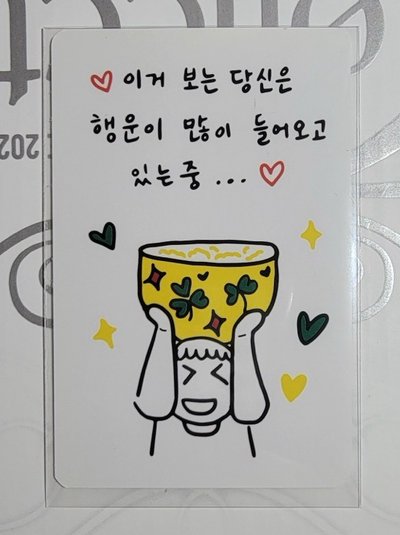 이거 보는 당신은
행운이 많이 들어오고
있는중...